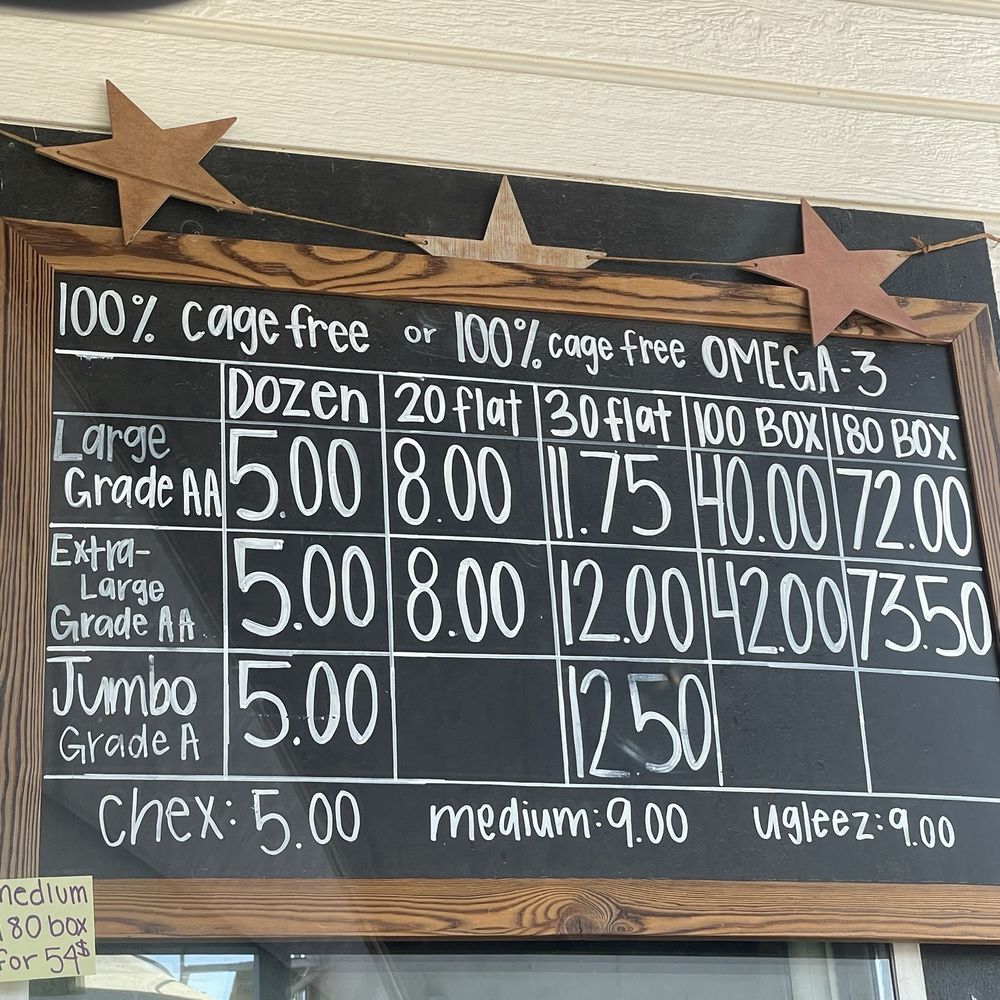 100% cage free or 100% cage free OMEGA-3
Dozen 20 flat 30 flat 100 BOX 180 BOX
Large
Grade AA 5.00 8.00 11.75 40.00 72.00
Extra-
Large
Grade AA 5.00 8.00 12.00 42.00 73.50
Jumbo
Grade A 5.00 12.50
Chex: 5.00 medium: 9.00 ugleez: 9.00
medium
180 box
for 54$